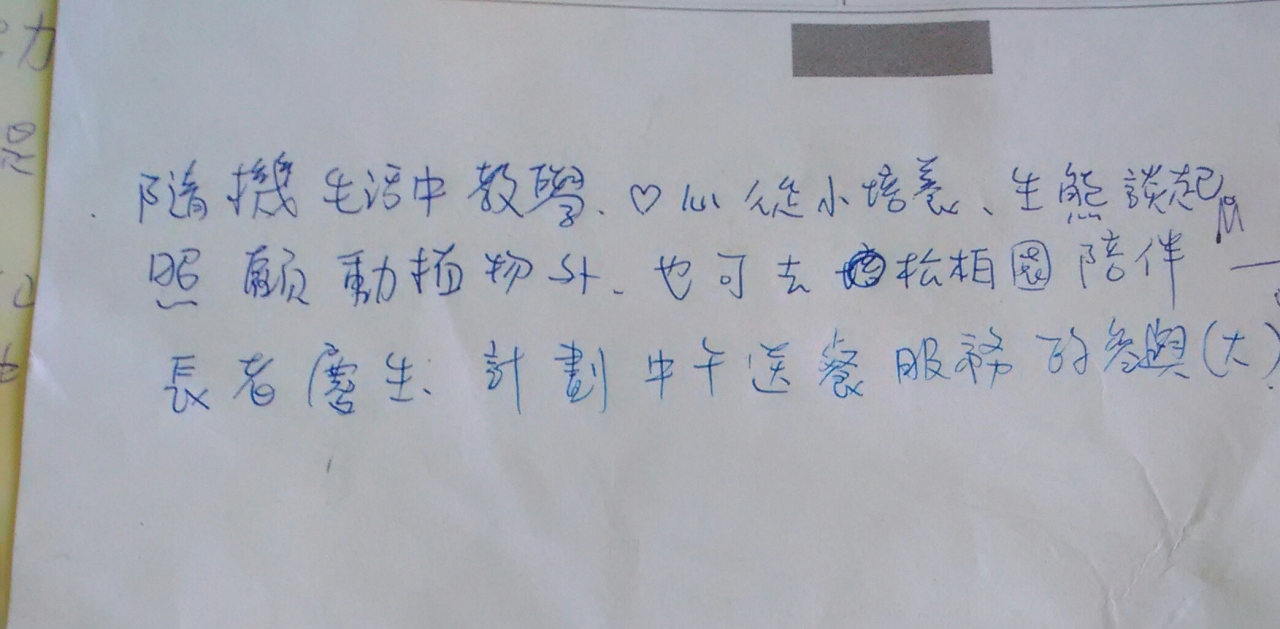 隨機生活中教學、♡心從小培養、生態談起
照顧動植物外、也可去松柏園陪伴
長者慶生、計劃中午送餐服務的參與(大)
力